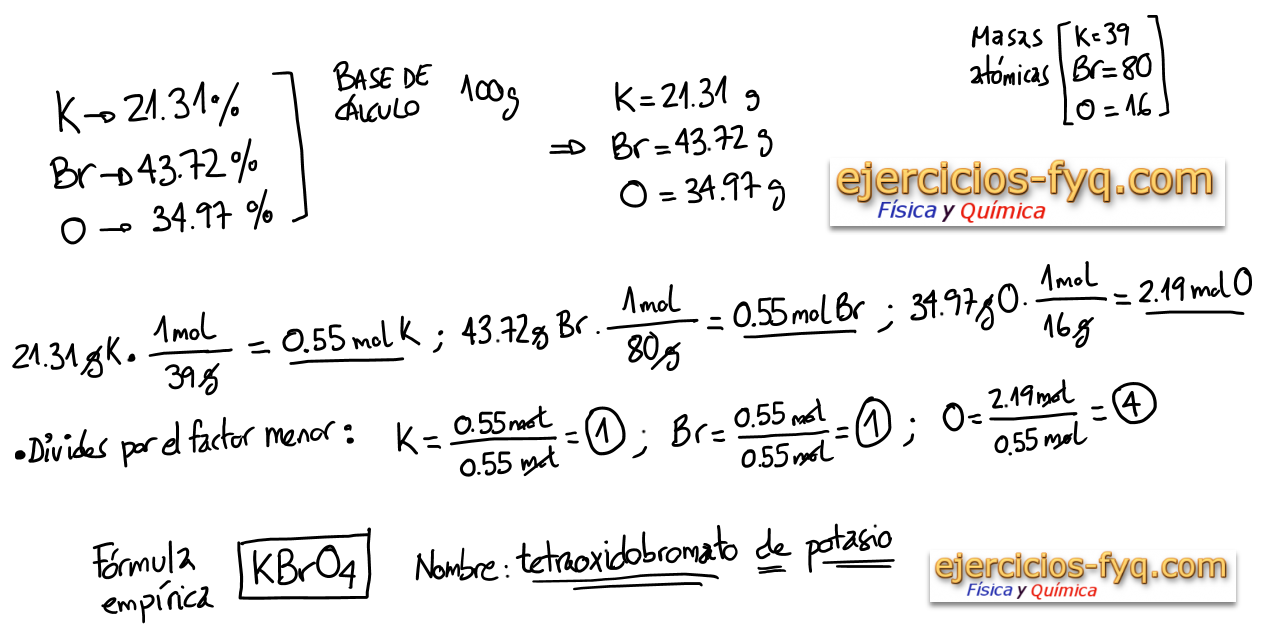 Masas atómicas [K=39
Br=80
O=16]
K→21.31%
Br→43.72%
O→34.97%
BASE DE CÁLCULO 100g
⇒ K=21.31 g
Br=43.72 g
O=34.97 g
ejercicios-fyq.com
Física y Química
21.31 g K · 1 mol / 39 g = 0.55 mol K ; 43.72 g Br · 1 mol / 80 g = 0.55 mol Br ; 34.97 g O · 1 mol / 16 g = 2.19 mol O
• Divides por el factor menor: K = 0.55 mol / 0.55 mol = 1 ; Br = 0.55 mol / 0.55 mol = 1 ; O = 2.19 mol / 0.55 mol = 4
Fórmula empírica KBrO₄ Nombre: tetraoxidobromato de potasio
ejercicios-fyq.com
Física y Química